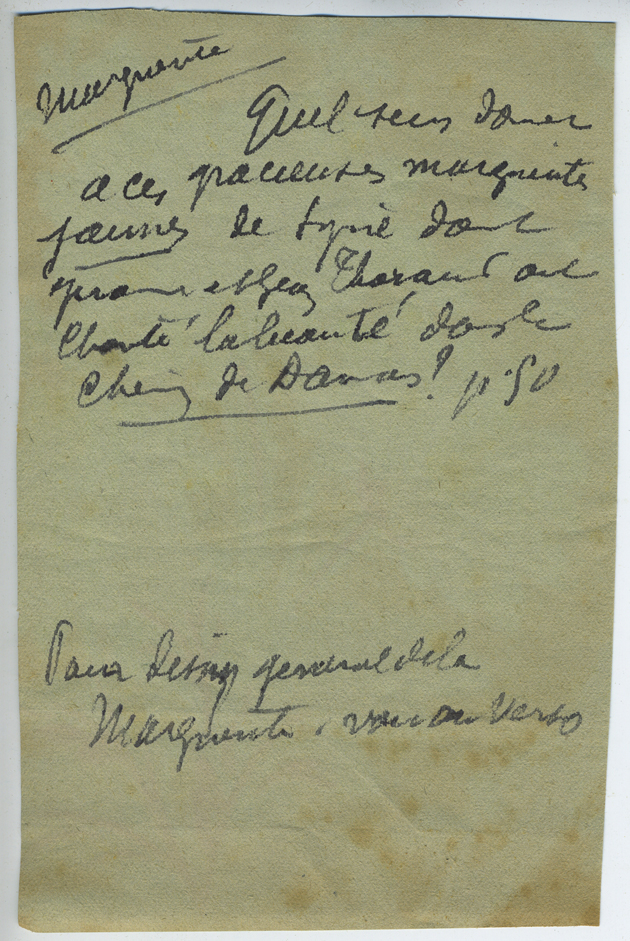 Marguerite
Quel sens donner
a ces gracieuses marguerites
jaunes de Syrie dont
et Jean Tharaud ont
Chanté la beauté dans le
Chemin de Damas? p. 50
Pour general de la
Marguerite, voir au verso